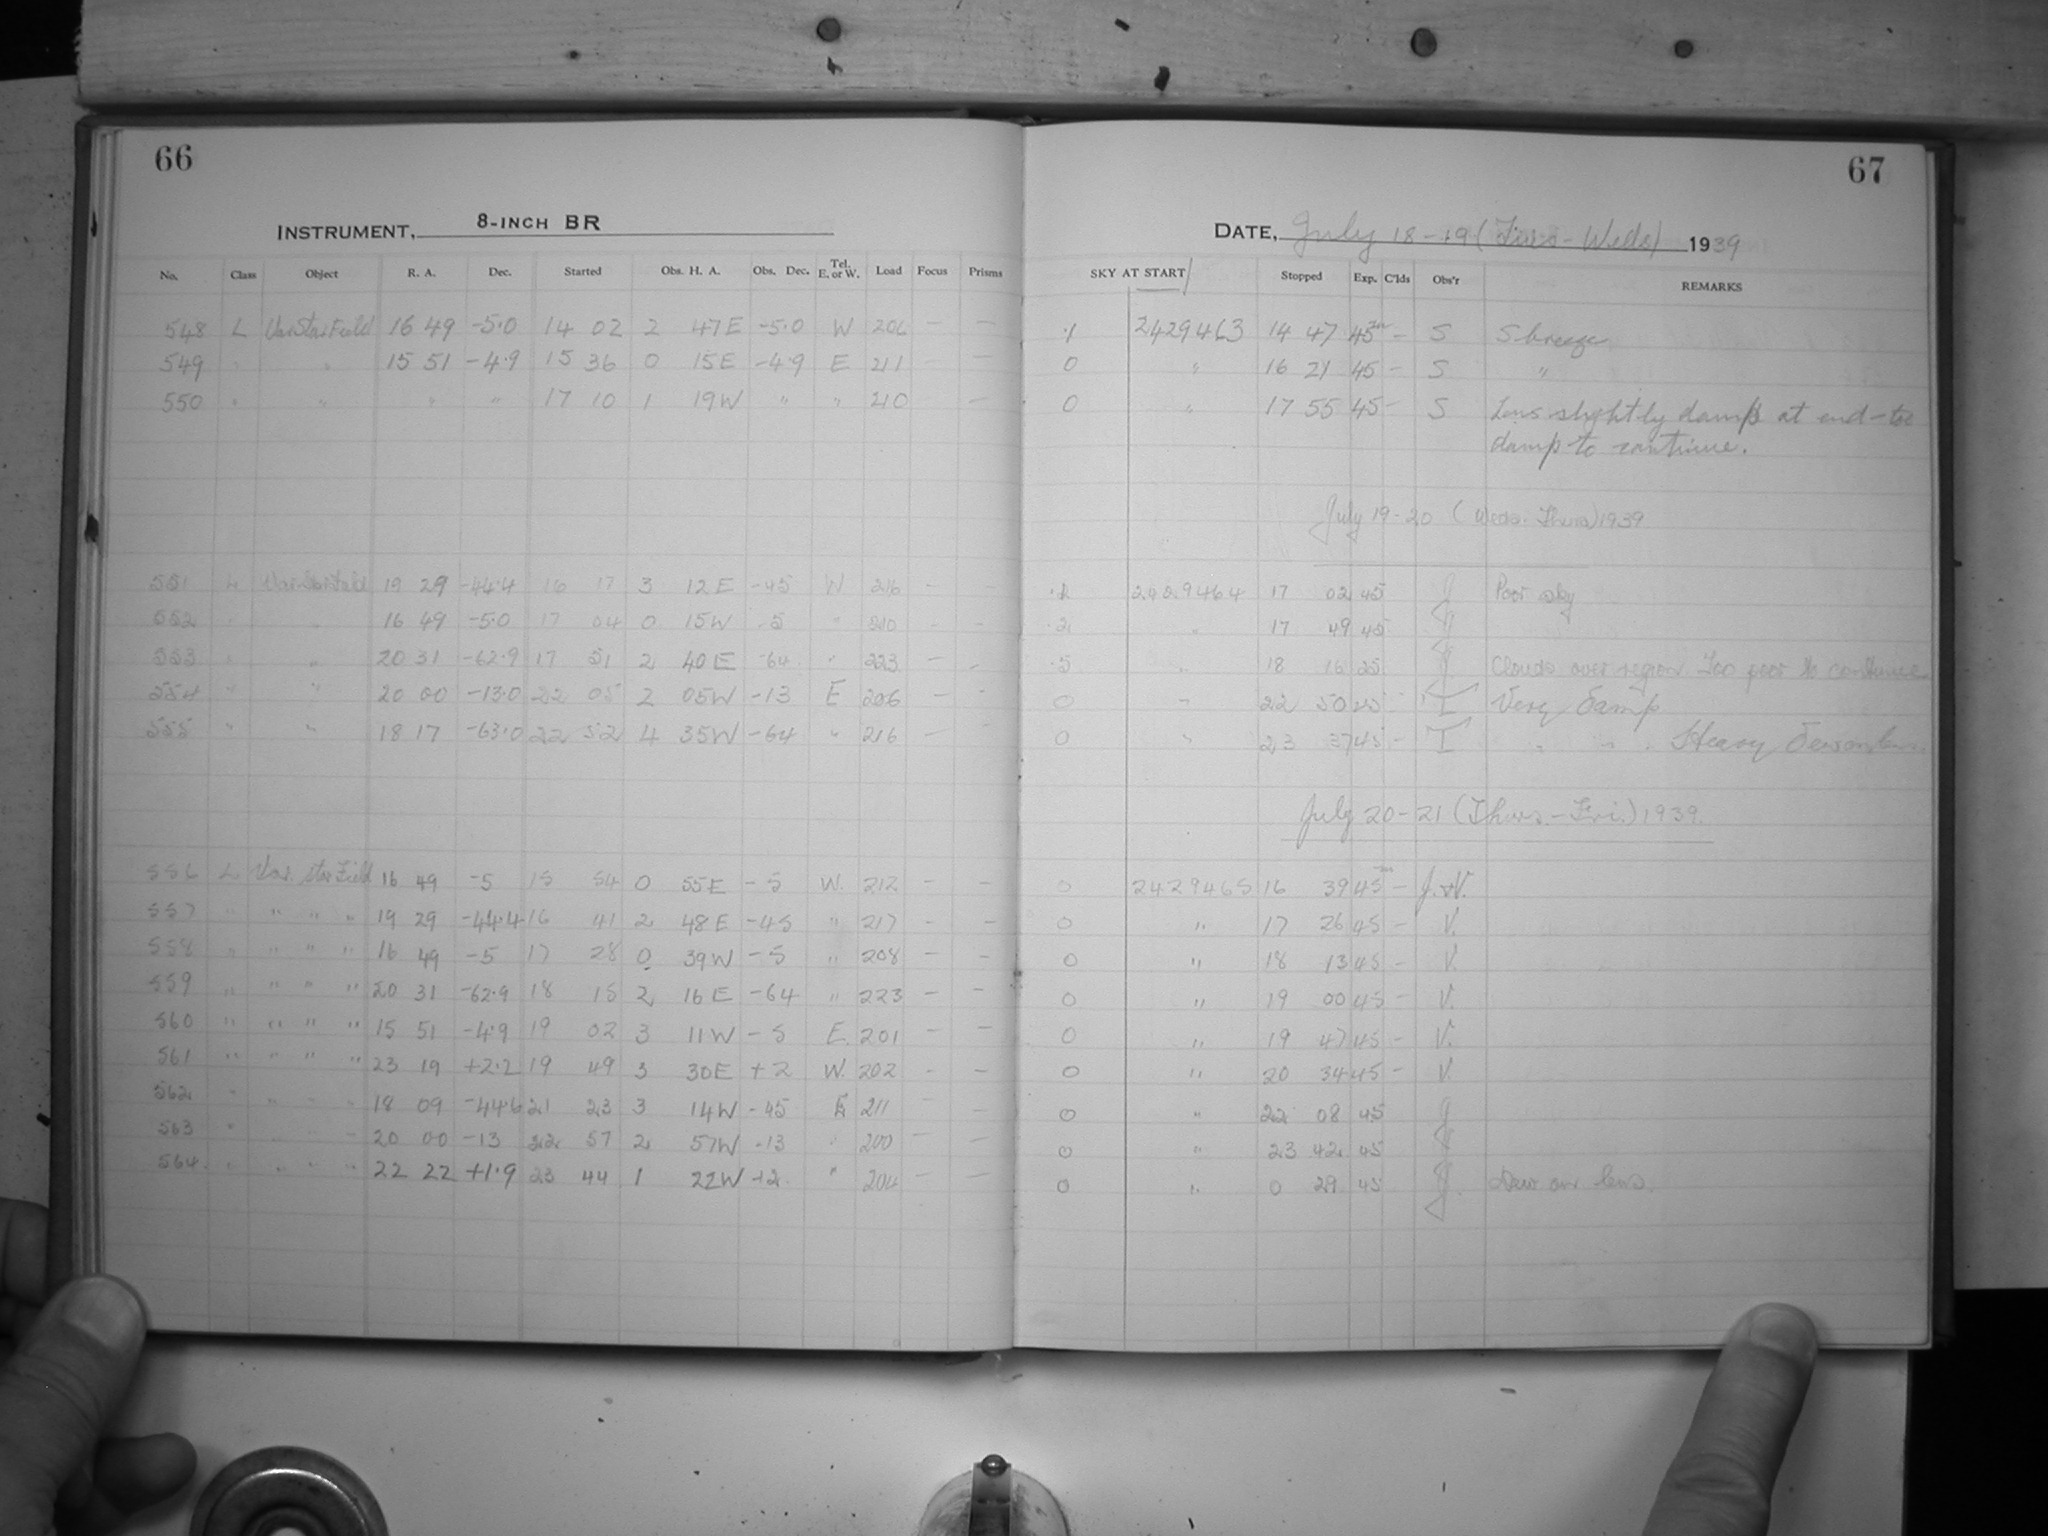 66
INSTRUMENT, 8-INCH BR
No. Class Object R. A. Dec. Started Obs. H. A. Obs. Dec. Tel. E. or W. Load Focus Prisms
548 L Var Star Field 16 49 -5.0 14 02 2 47E -5.0 W 206 — —
549 " " 15 51 -4.9 15 36 0 15E -4.9 E 211
550 " " " " 17 10 1 19W " " 210 —
551 L Var Star Field 19 29 -44.4 16 17 3 12E -45 W 216 - -
552 " 16 49 -5.0 17 04 0 15W -5 " 210 - -
553 " " 20 31 -62.9 17 51 2 40E -64 " 223 — -
554 " " 20 00 -13.0 22 05 2 05W -13 E 206 — —
555 " " 18 17 -63.0 22 52 4 35W -64 " 216 —
556 L Var. Star Field 16 49 -5 15 54 0 55E -5 W. 212 - -
557 " " " " 19 29 -44.4 16 41 2 48E -45 " 217 - -
558 " " " " 16 49 -5 17 28 0 39W -5 " 208 - -
559 " " " " 20 31 -62.9 18 15 2 16E -64 " 223 - -
560 " " " " 15 51 -4.9 19 02 3 11W -5 E. 201 - -
561 " " " " 23 19 +2.2 19 49 3 30E +2 W. 202 - -
562 " " " " 18 09 -44.6 21 23 3 14W -45 E 211 - -
563 " " " " 20 00 -13 22 57 2 57W -13 " 200 - -
564 " " " " 22 22 +1.9 23 44 1 22W +2 " 204 - -
67
DATE, July 18-19 (Tues-Weds) 1939
SKY AT START Stopped Exp. C'lds Obs'r REMARKS
.1 2429463 14 47 45m — S S breeze
0 " 16 21 45 — S "
0 " 17 55 45 — S Lens slightly damp at end - too
damp to continue.
July 19-20 (Weds-Thurs) 1939
2429464 17 02 45 J Poor sky
.2 " 17 49 45 J
.5 " 18 16 25 J Clouds over region Too poor to continue
0 " 22 50 45 - T Very Damp
0 " 23 37 45 - T " " . Heavy Dew on lens
July 20-21 (Thurs.-Fri.) 1939.
0 2429465 16 39 45m — J. & V.
0 " 17 26 45 — V.
0 " 18 13 45 — V.
0 " 19 00 45 — V.
0 " 19 47 45 — V.
0 " 20 34 45 — V.
0 " 22 08 45 J
0 " 23 42 45 J
0 " 0 29 45 J. Dew on lens.